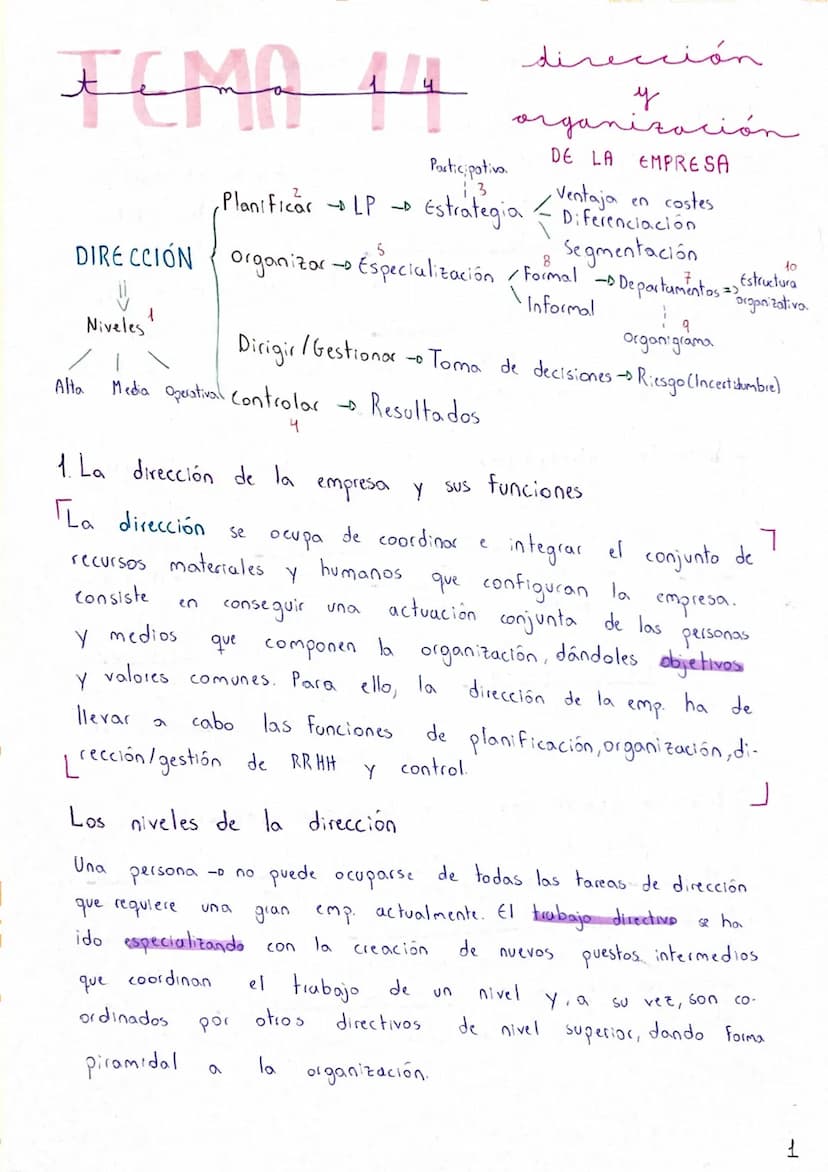 TEMA 14
tema 14
dirección
y
organización
DE LA EMPRESA
Participativa
Planificar 2 → LP → Estrategia 3 Ventaja en costes
Diferenciación
Segmentación
DIRECCIÓN
Organizar → Especialización 5 Formal 8 → Departamentos 7 => Estructura organizativa 10
Informal
Organigrama 9
Niveles 1
Dirigir/Gestionar → Toma de decisiones → Riesgo (Incertidumbre)
Alta Media Operativa
Controlar 4 → Resultados
1. La dirección de la empresa y sus funciones
La dirección se ocupa de coordinar e integrar el conjunto de
recursos materiales y humanos que configuran la empresa.
Consiste en conseguir una actuación conjunta de las personas
y medios que componen la organización, dándoles objetivos
y valores comunes. Para ello, la dirección de la emp. ha de
llevar a cabo las funciones de planificación, organización, di-
rección/gestión de RRHH y control.
Los niveles de la dirección
Una persona → no puede ocuparse de todas las tareas de dirección
que requiere una gran emp. actualmente. El trabajo directivo se ha
ido especializando con la creación de nuevos puestos intermedios
que coordinan el trabajo de un nivel y, a su vez, son co-
ordinados por otros directivos de nivel superior, dando forma
piramidal a la organización.
1